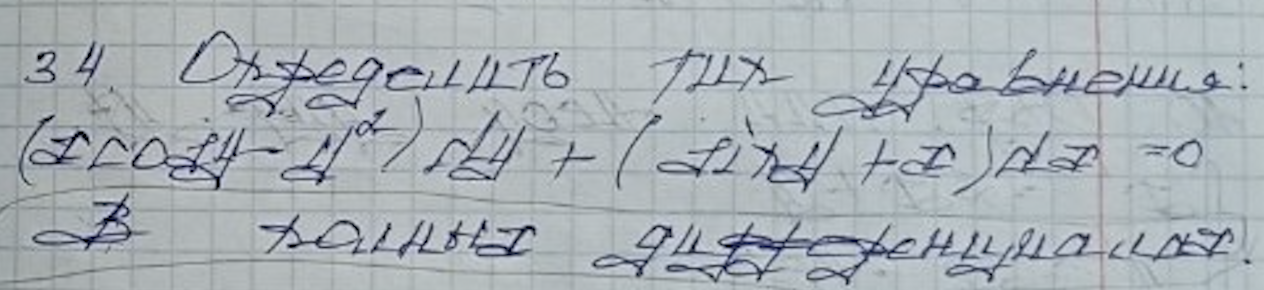 34. Определить тип уравнения:
(x cos y - y²) dy + (sin y + x) dx = 0
В полных дифференциалах.